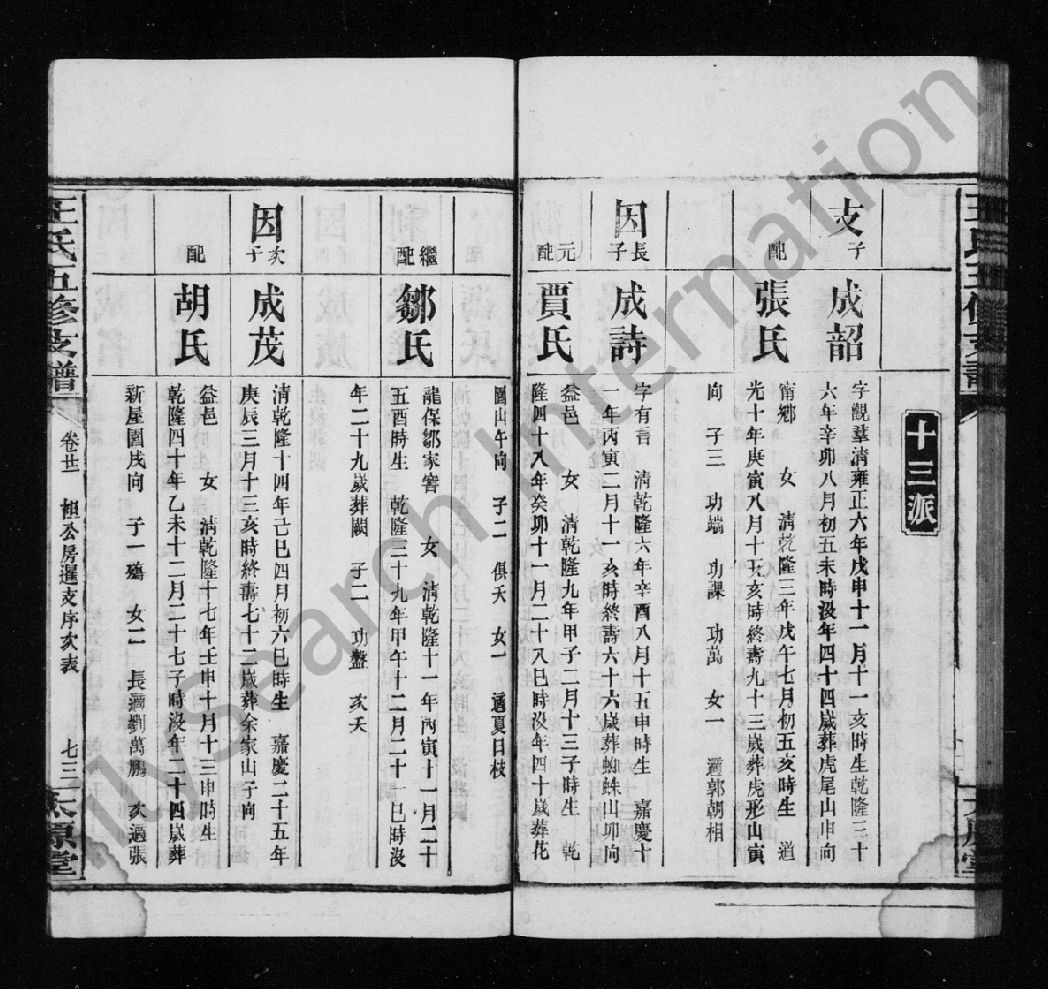 十三派
支子 成韶
字觀羣清雍正六年戊申十一月十一亥時生乾隆三十
六年辛卯八月初五未時沒年四十四歲葬虎尾山申向
配 張氏
甯鄉 女 清乾隆三年戊午七月初五亥時生 道
光十年庚寅八月十五亥時終壽九十三歲葬虎形山寅
向 子三 功端 功課 功萬 女一 適郭朝相
因長子 成詩
字有言 清乾隆六年辛酉八月十五申時生 嘉慶十
一年丙寅二月十一亥時終壽六十六歲葬蜘蛛山卯向
元配 賈氏
益邑 女 清乾隆九年甲子二月十三子時生 乾
隆四十八年癸卯十一月二十八巳時沒年四十歲葬花
園山午向 子二 俱夭 女一 適夏日枝
繼配 鄒氏
龍保鄒家窖 女 清乾隆十一年丙寅十一月二十
五酉時生 乾隆三十九年甲午十二月二十一巳時沒
年二十九歲葬闕 子二 功盤 次夭
因次子 成茂
清乾隆十四年己巳四月初六巳時生 嘉慶二十五年
庚辰三月十三亥時終壽七十二歲葬余家山子向
配 胡氏
益邑 女 清乾隆十七年壬申十月十三申時生
乾隆四十年乙未十二月二十七子時沒年二十四歲葬
新屋園戌向 子一殤 女二 長適劉萬鵬 次適張
王氏五修支譜 卷廿二 祖公房暹支序次表 七三 太原堂
ilySearch Internation